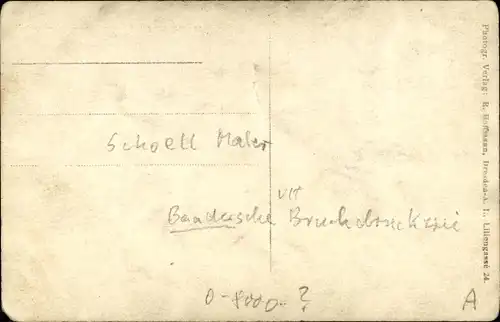 Schoell Maler
VIT
Baadersche Bruchdruckerie
0-8000-?
A
Photogr. Verlag: R. Hoffmann, Dresden-A. 1., Liliengasse 24.